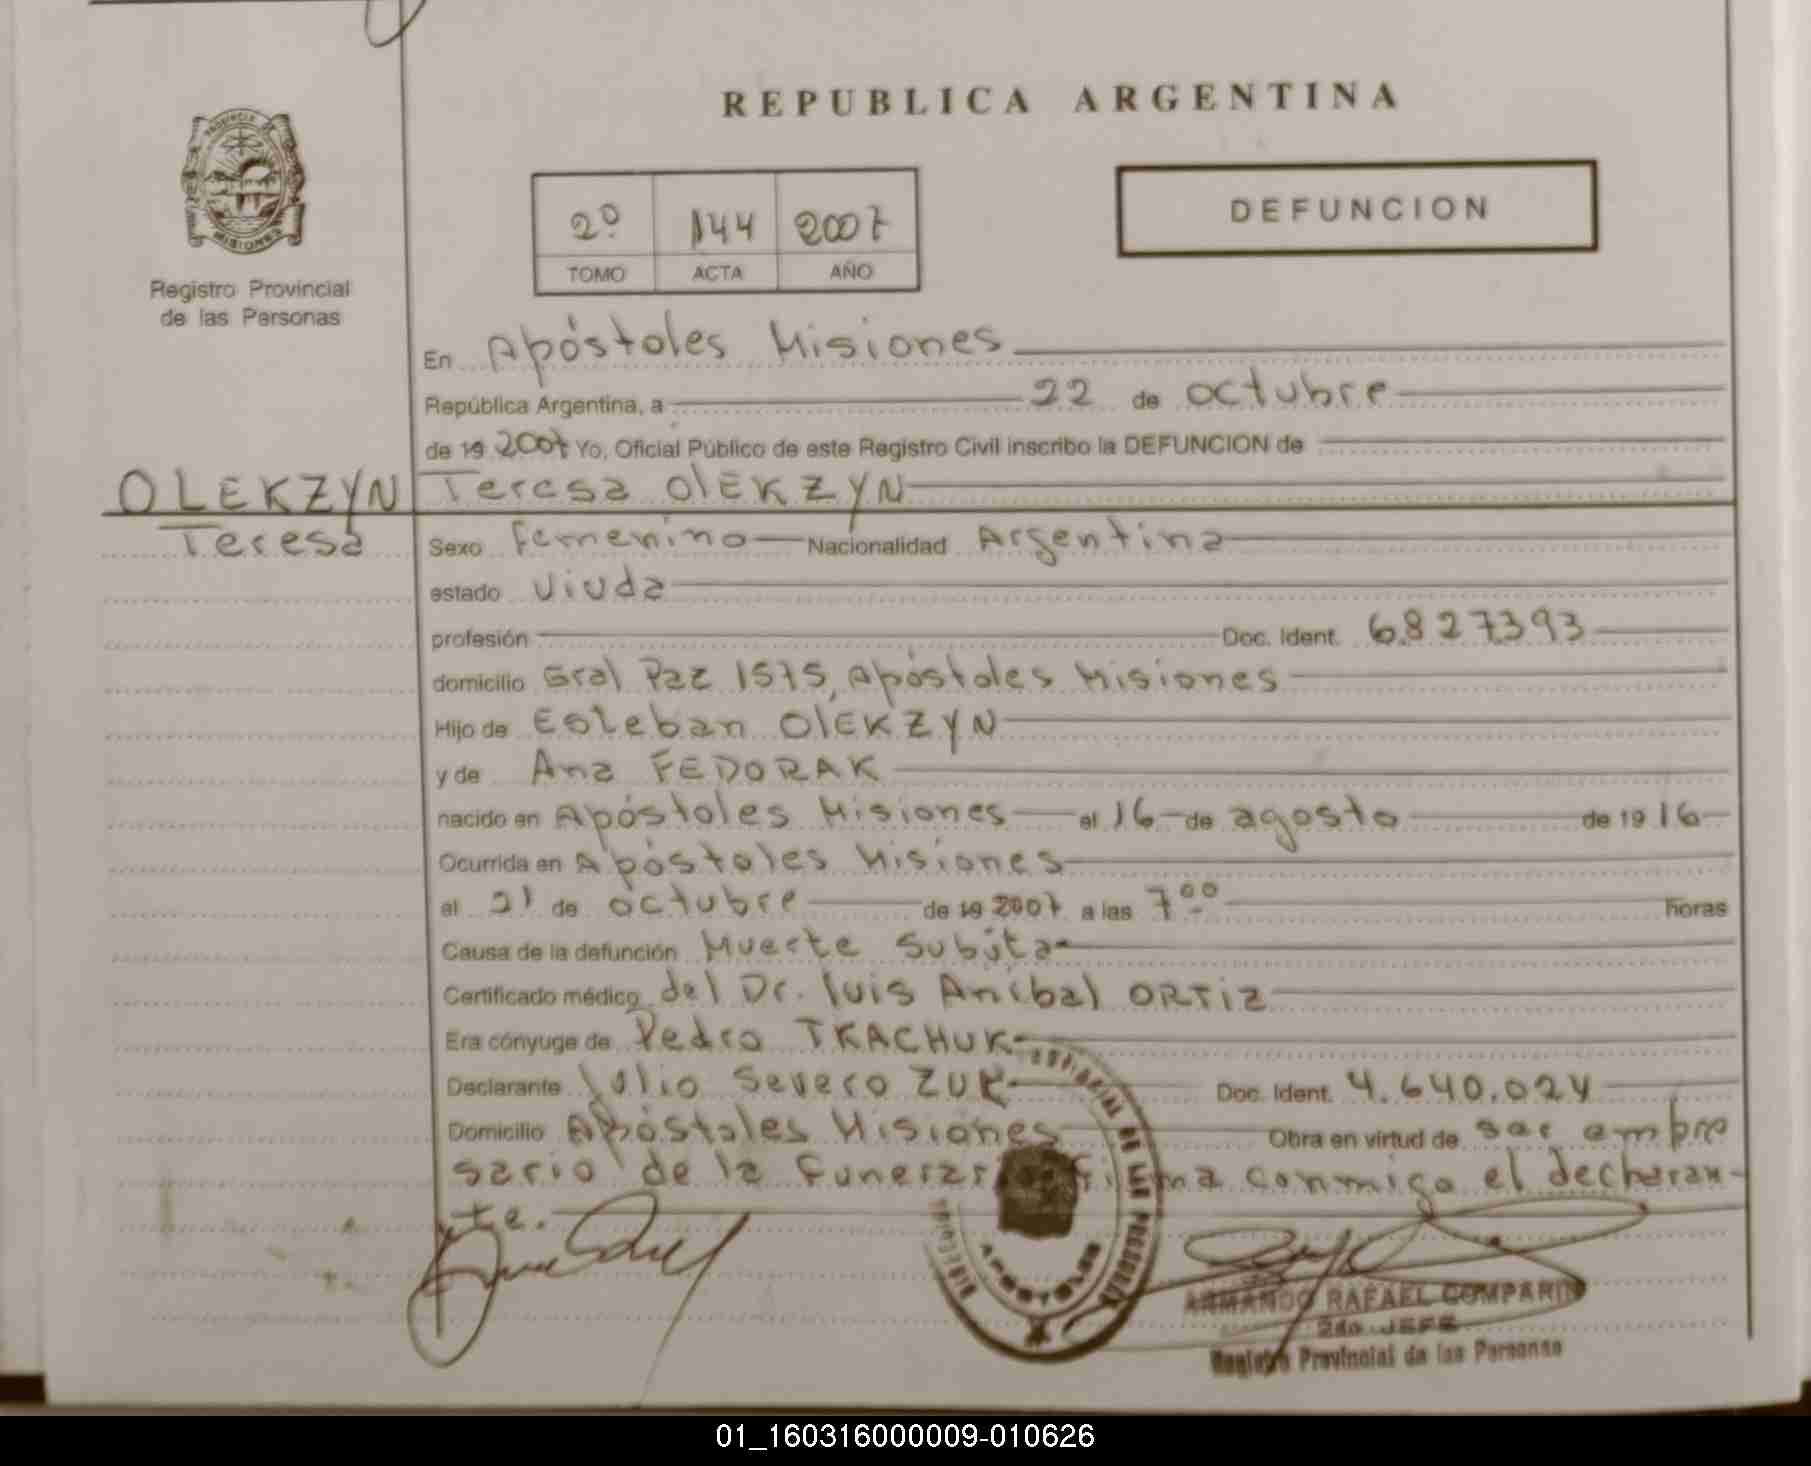 REPUBLICA ARGENTINA
PROVINCIA DE
MISIONES
Registro Provincial
de las Personas
2º 144 2007
TOMO ACTA AÑO
DEFUNCION
En Apóstoles Misiones
República Argentina, a 22 de octubre
de 19 2007 Yo, Oficial Público de este Registro Civil inscribo la DEFUNCION de
OLEKZYN Teresa OlEKZYN
Teresa Sexo Femenino Nacionalidad Argentina
estado Viuda
profesión Doc. Ident. 6.827.393
domicilio Gral Paz 1575, Apóstoles Misiones
Hijo de Esteban OlEKZYN
y de Ana FEDORAK
nacido en Apóstoles Misiones el 16 de agosto de 19 16
Ocurrida en Apóstoles Misiones
el 21 de octubre de 19 2007 a las 7 00 horas
Causa de la defunción Muerte Subita
Certificado médico del Dr. Luis Anibal ORTIZ
Era cónyuge de Pedro TKACHUK
Declarante Julio Severo ZUK Doc. Ident. 4.640.024
Domicilio Apóstoles Misiones Obra en virtud de ser empre
sario de la Funeraria firma conmigo el declaran-
te.
PROVINCIAL DE LAS PERSONAS
APOSTOLES
MISIONES
ARMANDO RAFAEL COMPARIN
2do JEFE
Registro Provincial de las Personas
01_160316000009-010626